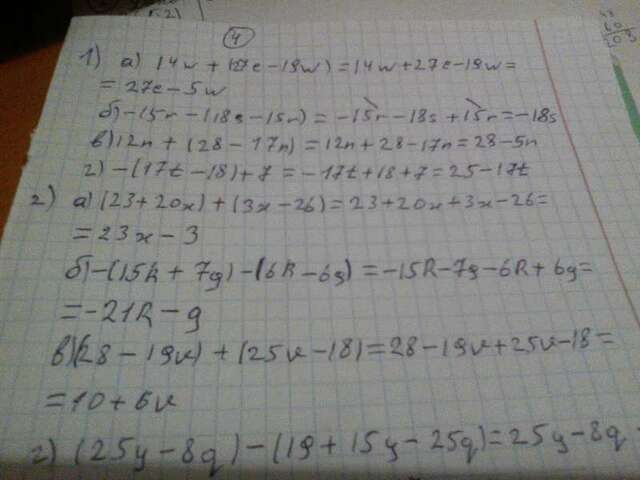 4
1) а) 14w + (27c - 19w) = 14w + 27c - 19w =
= 27c - 5w
б) -15r - (18s - 15r) = -15r - 18s + 15r = -18s
в) 12n + (28 - 17n) = 12n + 28 - 17n = 28 - 5n
г) -(17t - 18) + 7 = -17t + 18 + 7 = 25 - 17t
2) а) (23 + 20x) + (3x - 26) = 23 + 20x + 3x - 26 =
= 23x - 3
б) -(15k + 7g) - (6k - 6g) = -15k - 7g - 6k + 6g =
= -21k - g
в) (28 - 19v) + (25v - 18) = 28 - 19v + 25v - 18 =
= 10 + 6v
г) (25y - 8q) - (19 + 15y - 25q) = 25y - 8q